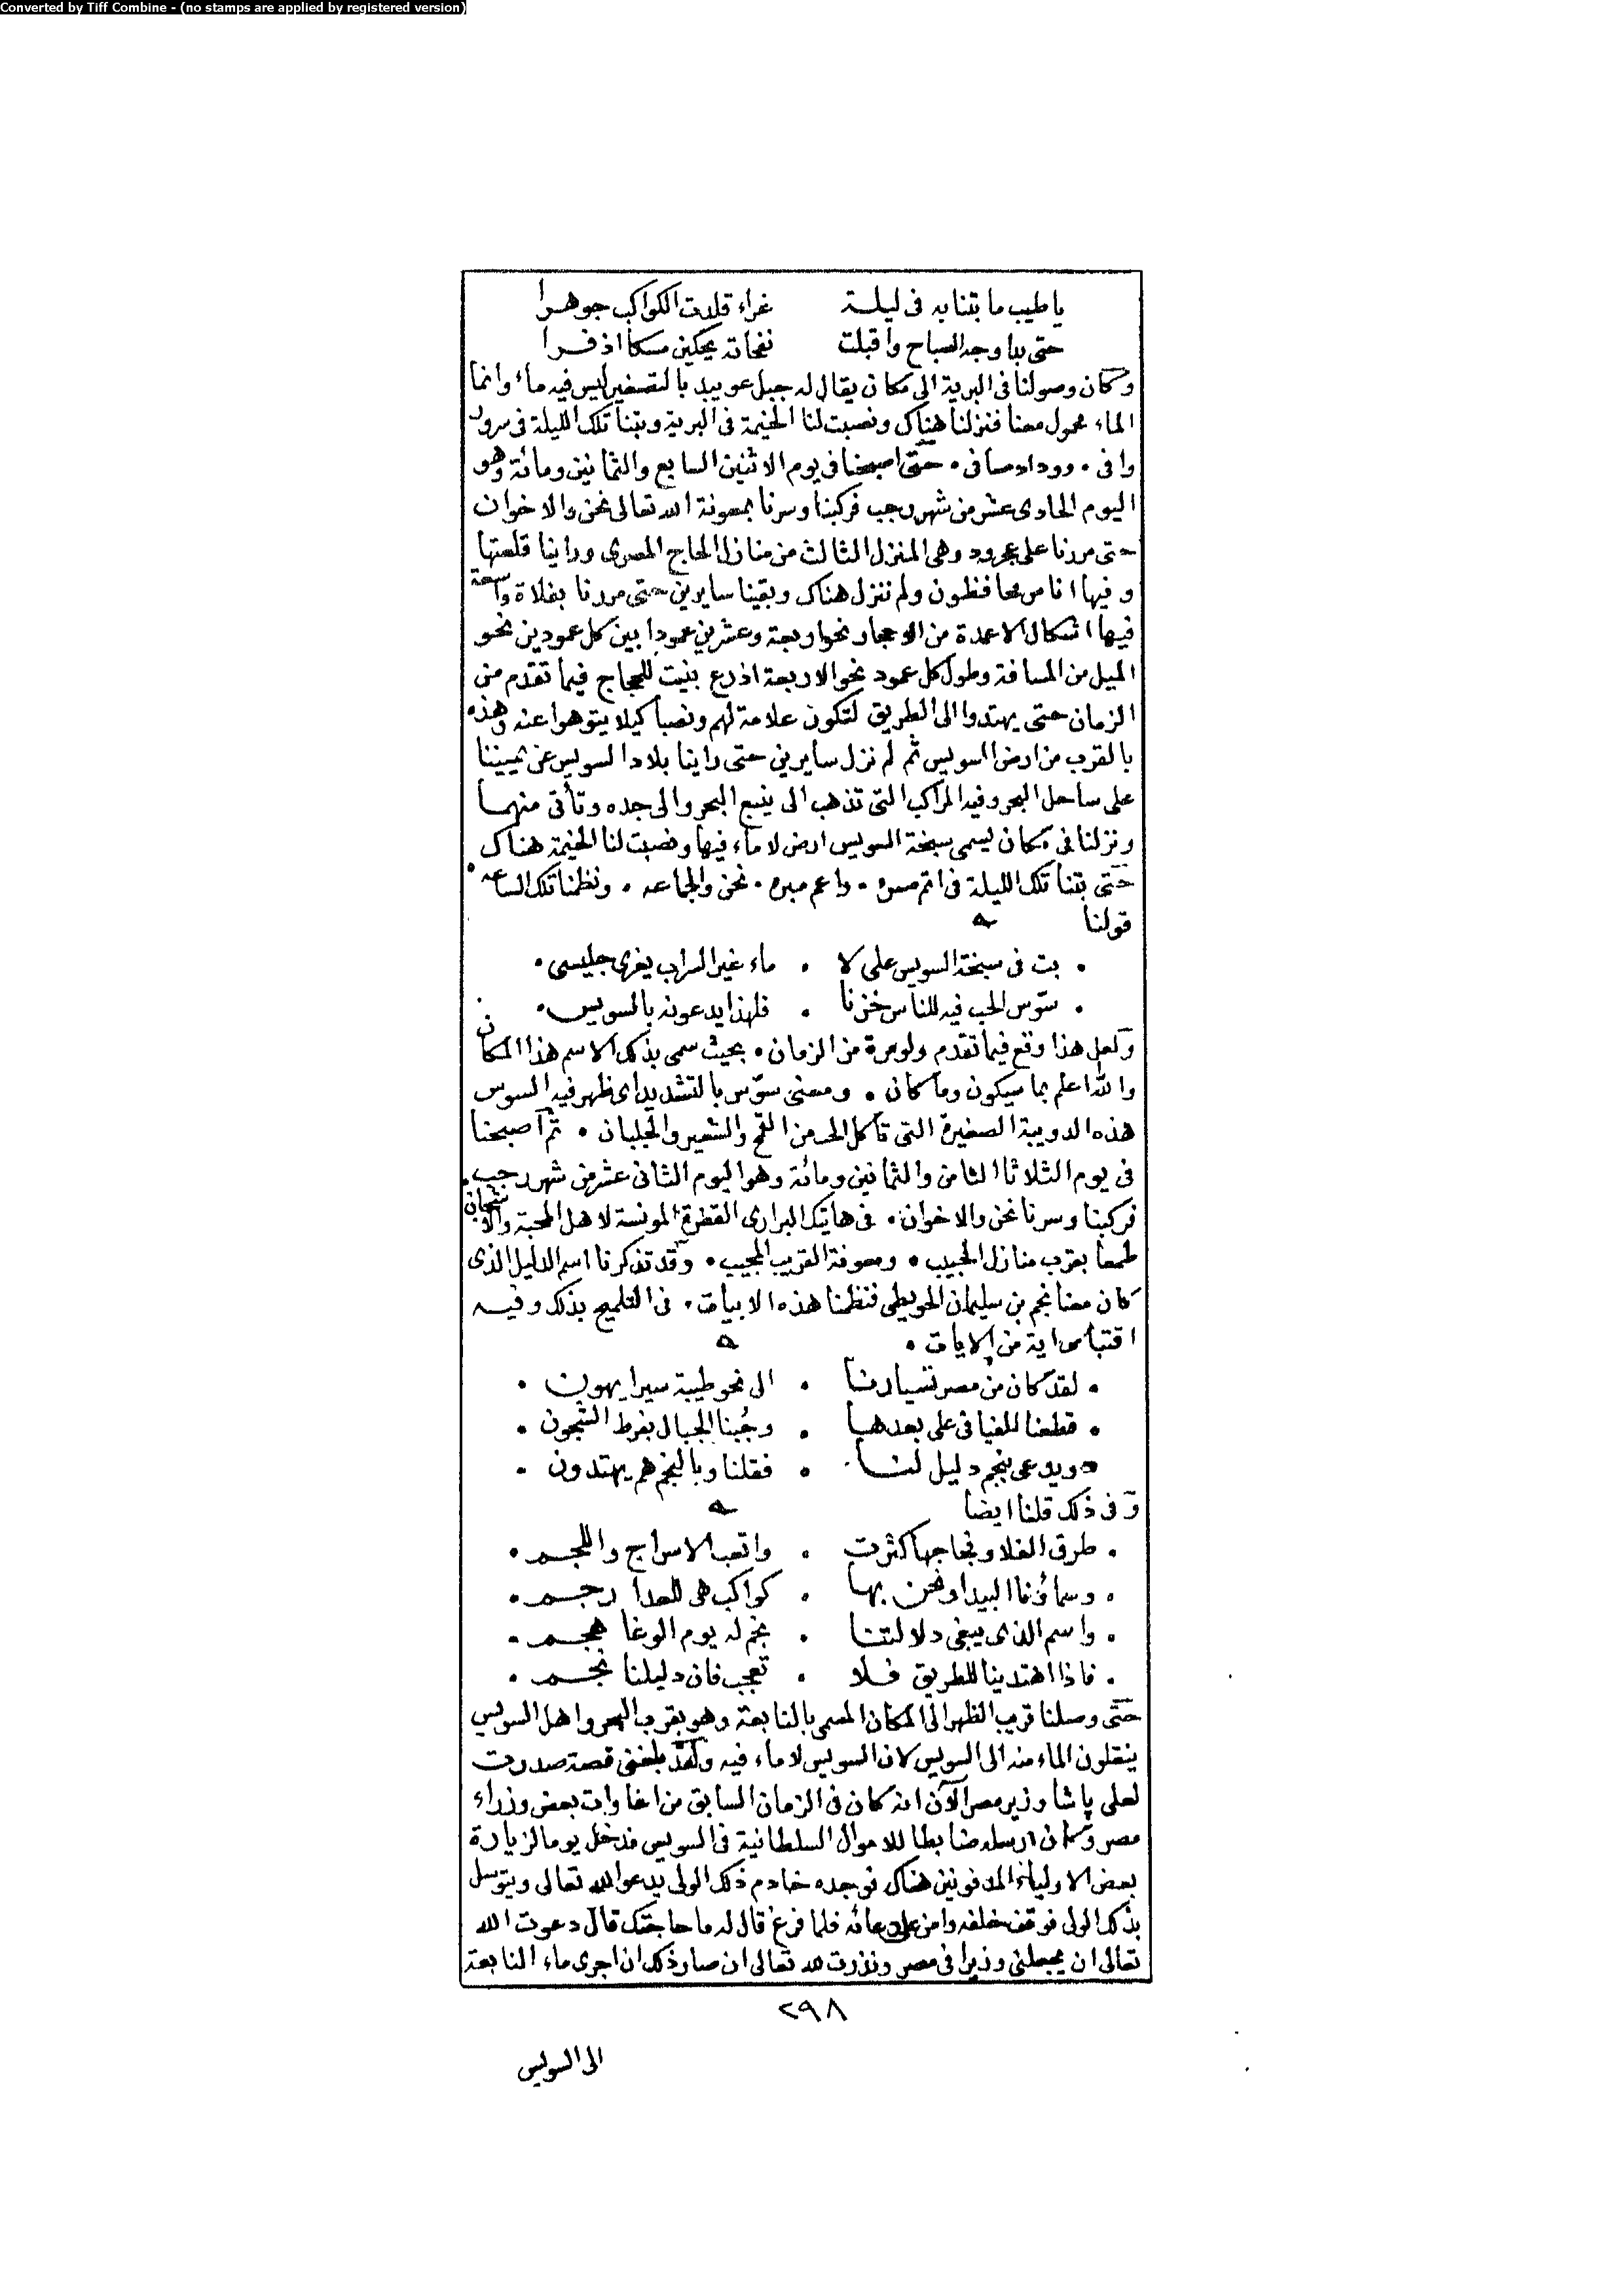 Converted by Tiff Combine - (no stamps are applied by registered version)
ياطيب ما بتنا به فى ليلة غراء قلدت الكواكب جوهرا
حتى بدا وجه الصباح واقبلت نفحاته يحكين مسكا اذفرا
وكان وصولنا فى البرية الى مكان يقال له جبل عويبد بالتصغير ليس فيه ماء وانما
الماء محمول معنا فنزلنا هناك ونصبت لنا الخيمة فى البرية وبتنا تلك الليلة فى سرور
وافى . ووداد صافى . حتى اصبحنا فى يوم الاثنين السابع والثمانين ومائة وهو
اليوم الحادى عشر من شهر رجب فركبنا وسرنا بمعونة الله تعالى نحن والاخوان
حتى مررنا على عجرود وهى المنزل الثالث من منازل الحاج المصرى وراينا قلعتها
وفيها اناس محافظون ولم ننزل هناك وبقينا سايرين حتى مررنا بفلاة واسعة
فيها اشكال الاعمدة من الاحجار نحو اربعة وعشرين عمودا بين كل عمودين نحو
الميل من المسافة وطول كل عمود نحو الاربعة اذرع بنيت للحجاج فيما تقدم من
الزمان حتى يهتدوا الى الطريق لتكون علامة لهم ونصبا كيلا يتوهوا عنه وهذه
بالقرب من ارض السويس ثم لم نزل سايرين حتى راينا بلاد السويس عن يميننا
على ساحل البحر وفيه المراكب التى تذهب الى ينبع البحر والى جده وتأتى منهما
ونزلنا فى مكان يسمى سبخة السويس ارض لا ماء فيها ونصبت لنا الخيمة هناك
حتى بتنا تلك الليلة فى اتم مسرة . واعم مبره . نحن والجماعه . ونظمنا تلك الساعه .
قولنا
. بت فى سبخة السويس على لا . ماء غير السراب يغرى جليسى .
. سوّس الحب فيه للناس خزنا . فلهذا يدعونه بالسويس .
ولعل هذا وقع فيما تقدم ولو مرة من الزمان . بحيث سمى بذلك الاسم هذا المكان
والله اعلم بما سيكون وما كان . ومعنى سوّس بالتشديد اى ظهر فيه السوس
هذه الدويبة الصغيرة التى تأكل الحب من القمح والشعير والجلبان . ثم اصبحنا
فى يوم الثلاثا الثامن والثمانين ومائة وهو اليوم الثانى عشر من شهر رجب .
فركبنا وسرنا نحن والاخوان . فى هاتيك البرارى القفرة المونسة لاهل المحبة والاشجان
طمعا بقرب منازل الحبيب . ومعونة القريب المجيب . وقد تذكرنا اسم الدليل الذى
كان معنا نجم بن سليمان الحويطى فنظمنا هذه الابيات . فى التلميح بذلك وفيه
اقتباس اية من الايات .
. لقد كان من مصر تسيارنا . الى نحو طيبة سيرا يهون .
. قطعنا الفيافى على بعدها . وجُبنا الجبال بفرط الشجون .
. ويدعى بنجم دليل لنا . فقلنا وبالنجم هم يهتدون .
وفى ذلك قلنا ايضا
. طرق الفلا وفجاجها كثرت . واتعب الاسراج واللجم .
. وسماؤنا البيدا ونحن بها . كواكب هى للعدا رجم .
. واسم الذى يبغى دلالتنا . نجم له يوم الوغا هجم .
. فاذا اهتدينا للطريق فلا . تعجب فان دليلنا نجم .
حتى وصلنا قريب الظهر الى المكان المسمى بالنابعة وهو بقرب البحر واهل السويس
ينقلون الماء منه الى السويس لان السويس لا ماء فيه ولقد بلغنى قصة صدرت
لعلى پاشا وزير مصر الآن انه كان فى الزمان السابق من اغاوات بعض وزراء
مصر وكان ارسله ضابطا للاموال السلطانية فى السويس فدخل يوما لزيارة
بعض الاولياء المدفونين هناك فوجده خادم ذلك الولى يدعو الله تعالى ويتوسل
بذلك الولى فوقف خلفه وامن على دعائه فلما فرغ قال له ما حاجتك قال دعوت الله
تعالى ان يجعلنى وزيرا فى مصر ونذرت لله تعالى ان صار ذلك ان اجرى ماء النابعة
٢٩٨
الى السويس